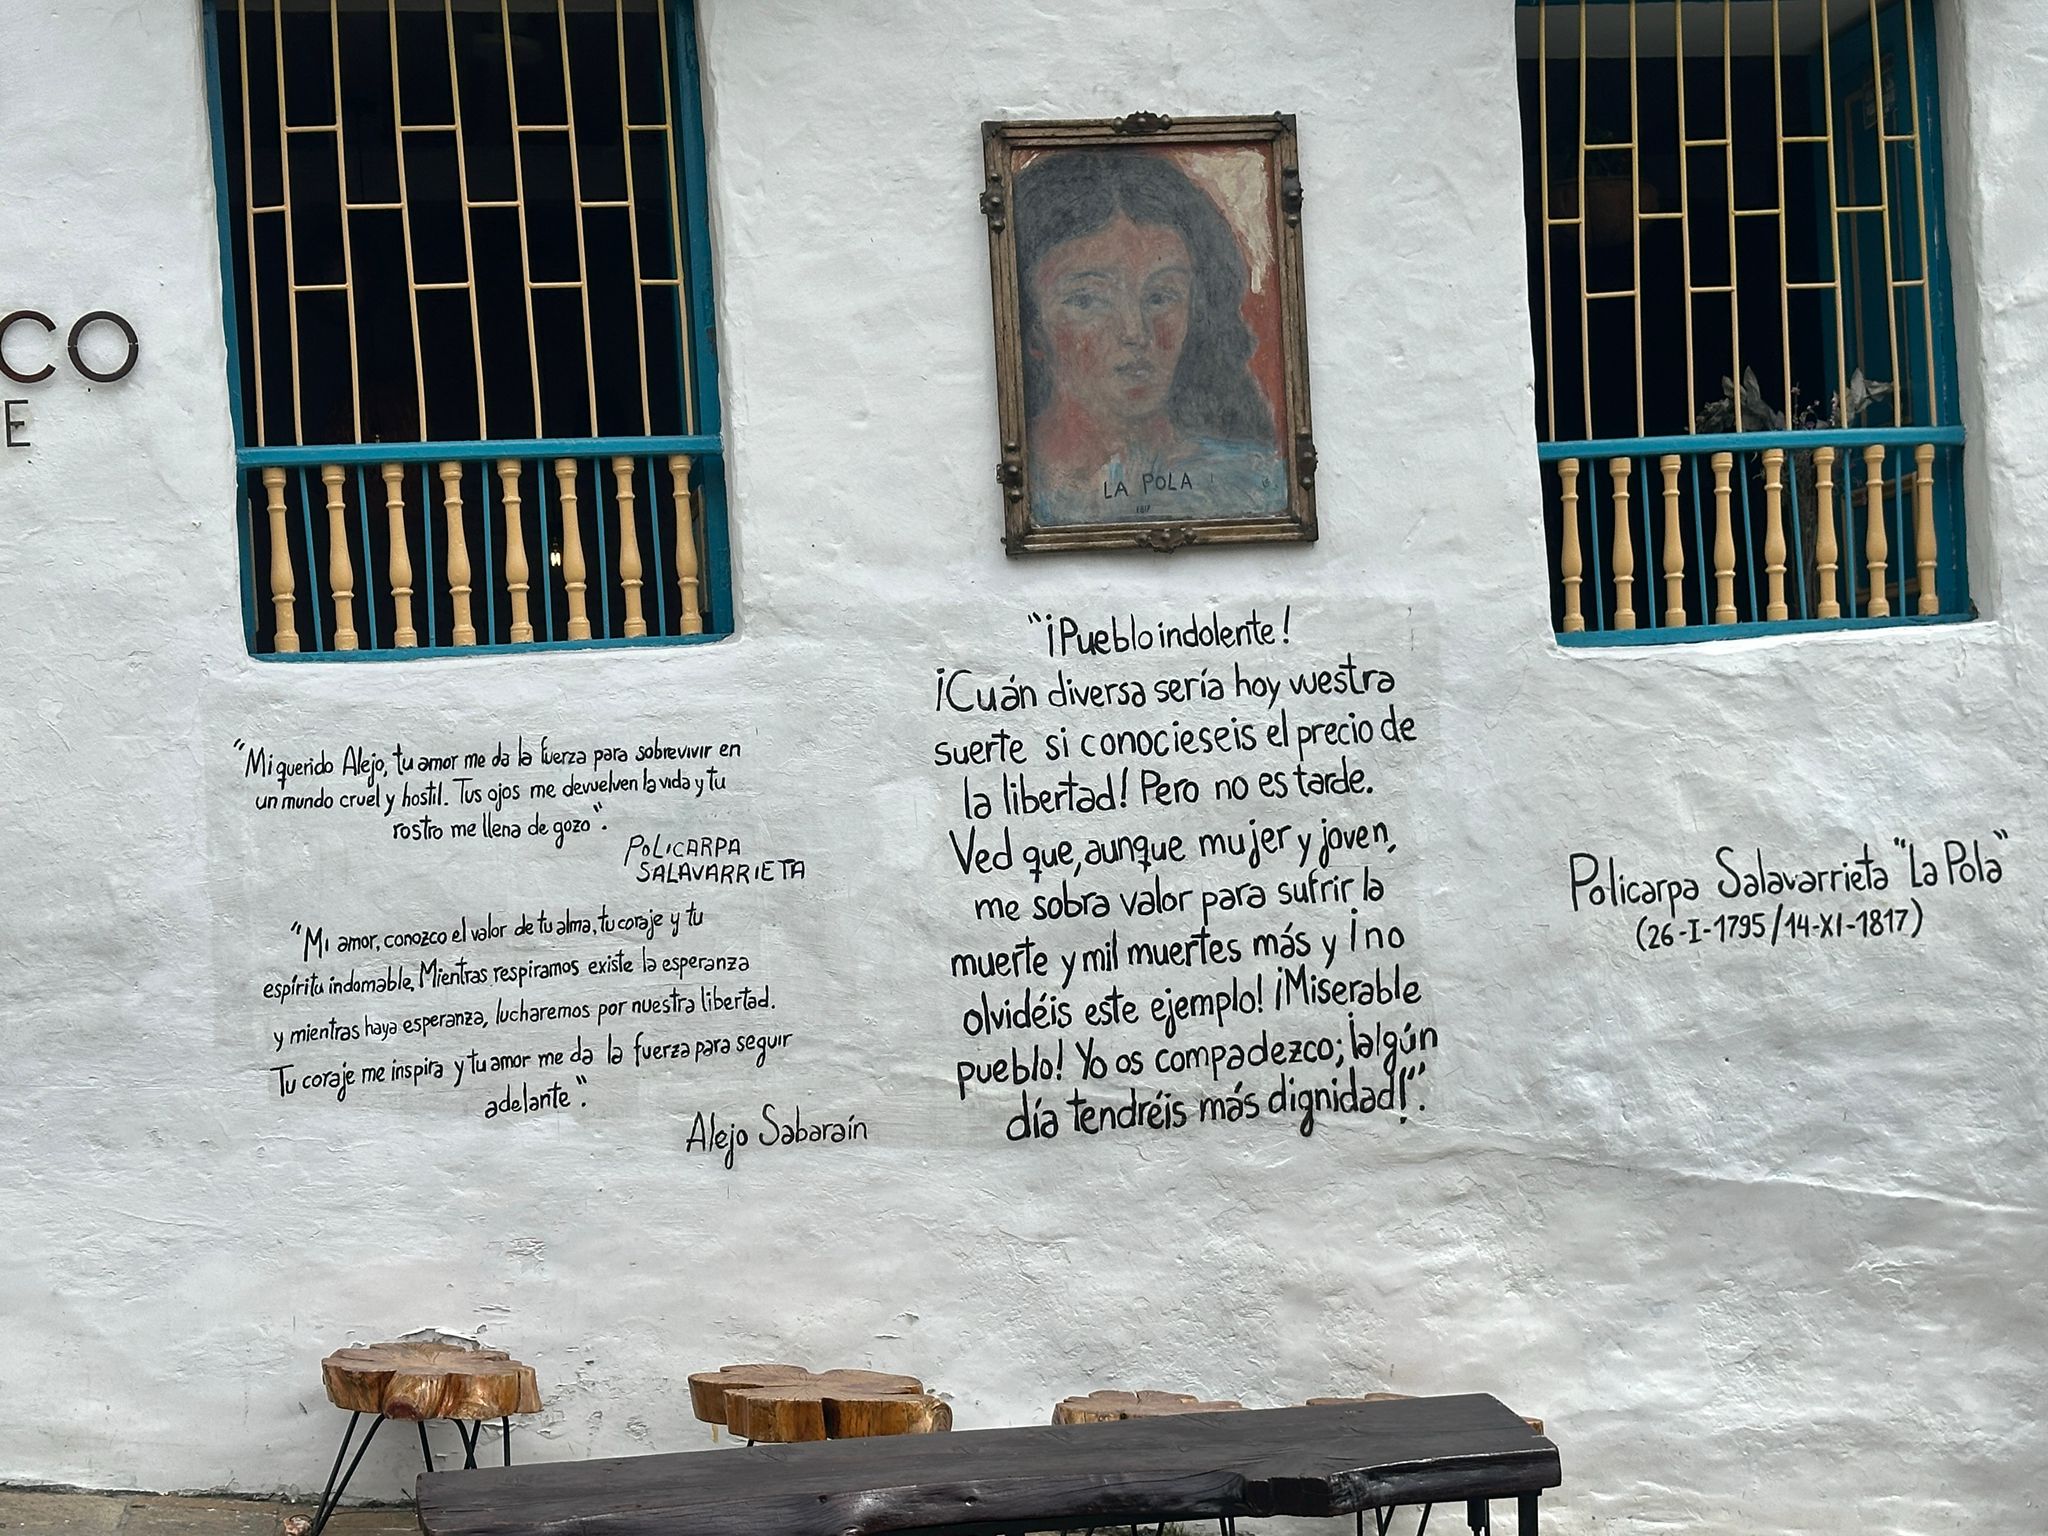 CO
E
LA POLA
1817
"Mi querido Alejo, tu amor me da la fuerza para sobrevivir en
un mundo cruel y hostil. Tus ojos me devuelven la vida y tu
rostro me llena de gozo".
POLICARPA
SALAVARRIETA
"Mi amor, conozco el valor de tu alma, tu coraje y tu
espíritu indomable. Mientras respiramos existe la esperanza
y mientras haya esperanza, lucharemos por nuestra libertad.
Tu coraje me inspira y tu amor me da la fuerza para seguir
adelante".
Alejo Sabaraín
"¡Pueblo indolente!
¡Cuán diversa sería hoy vuestra
suerte si conocieseis el precio de
la libertad! Pero no es tarde.
Ved que, aunque mujer y joven,
me sobra valor para sufrir la
muerte y mil muertes más y ¡no
olvidéis este ejemplo! ¡Miserable
pueblo! Yo os compadezco; ¡algún
día tendréis más dignidad!".
Policarpa Salavarrieta "La Pola"
(26-I-1795/14-XI-1817)